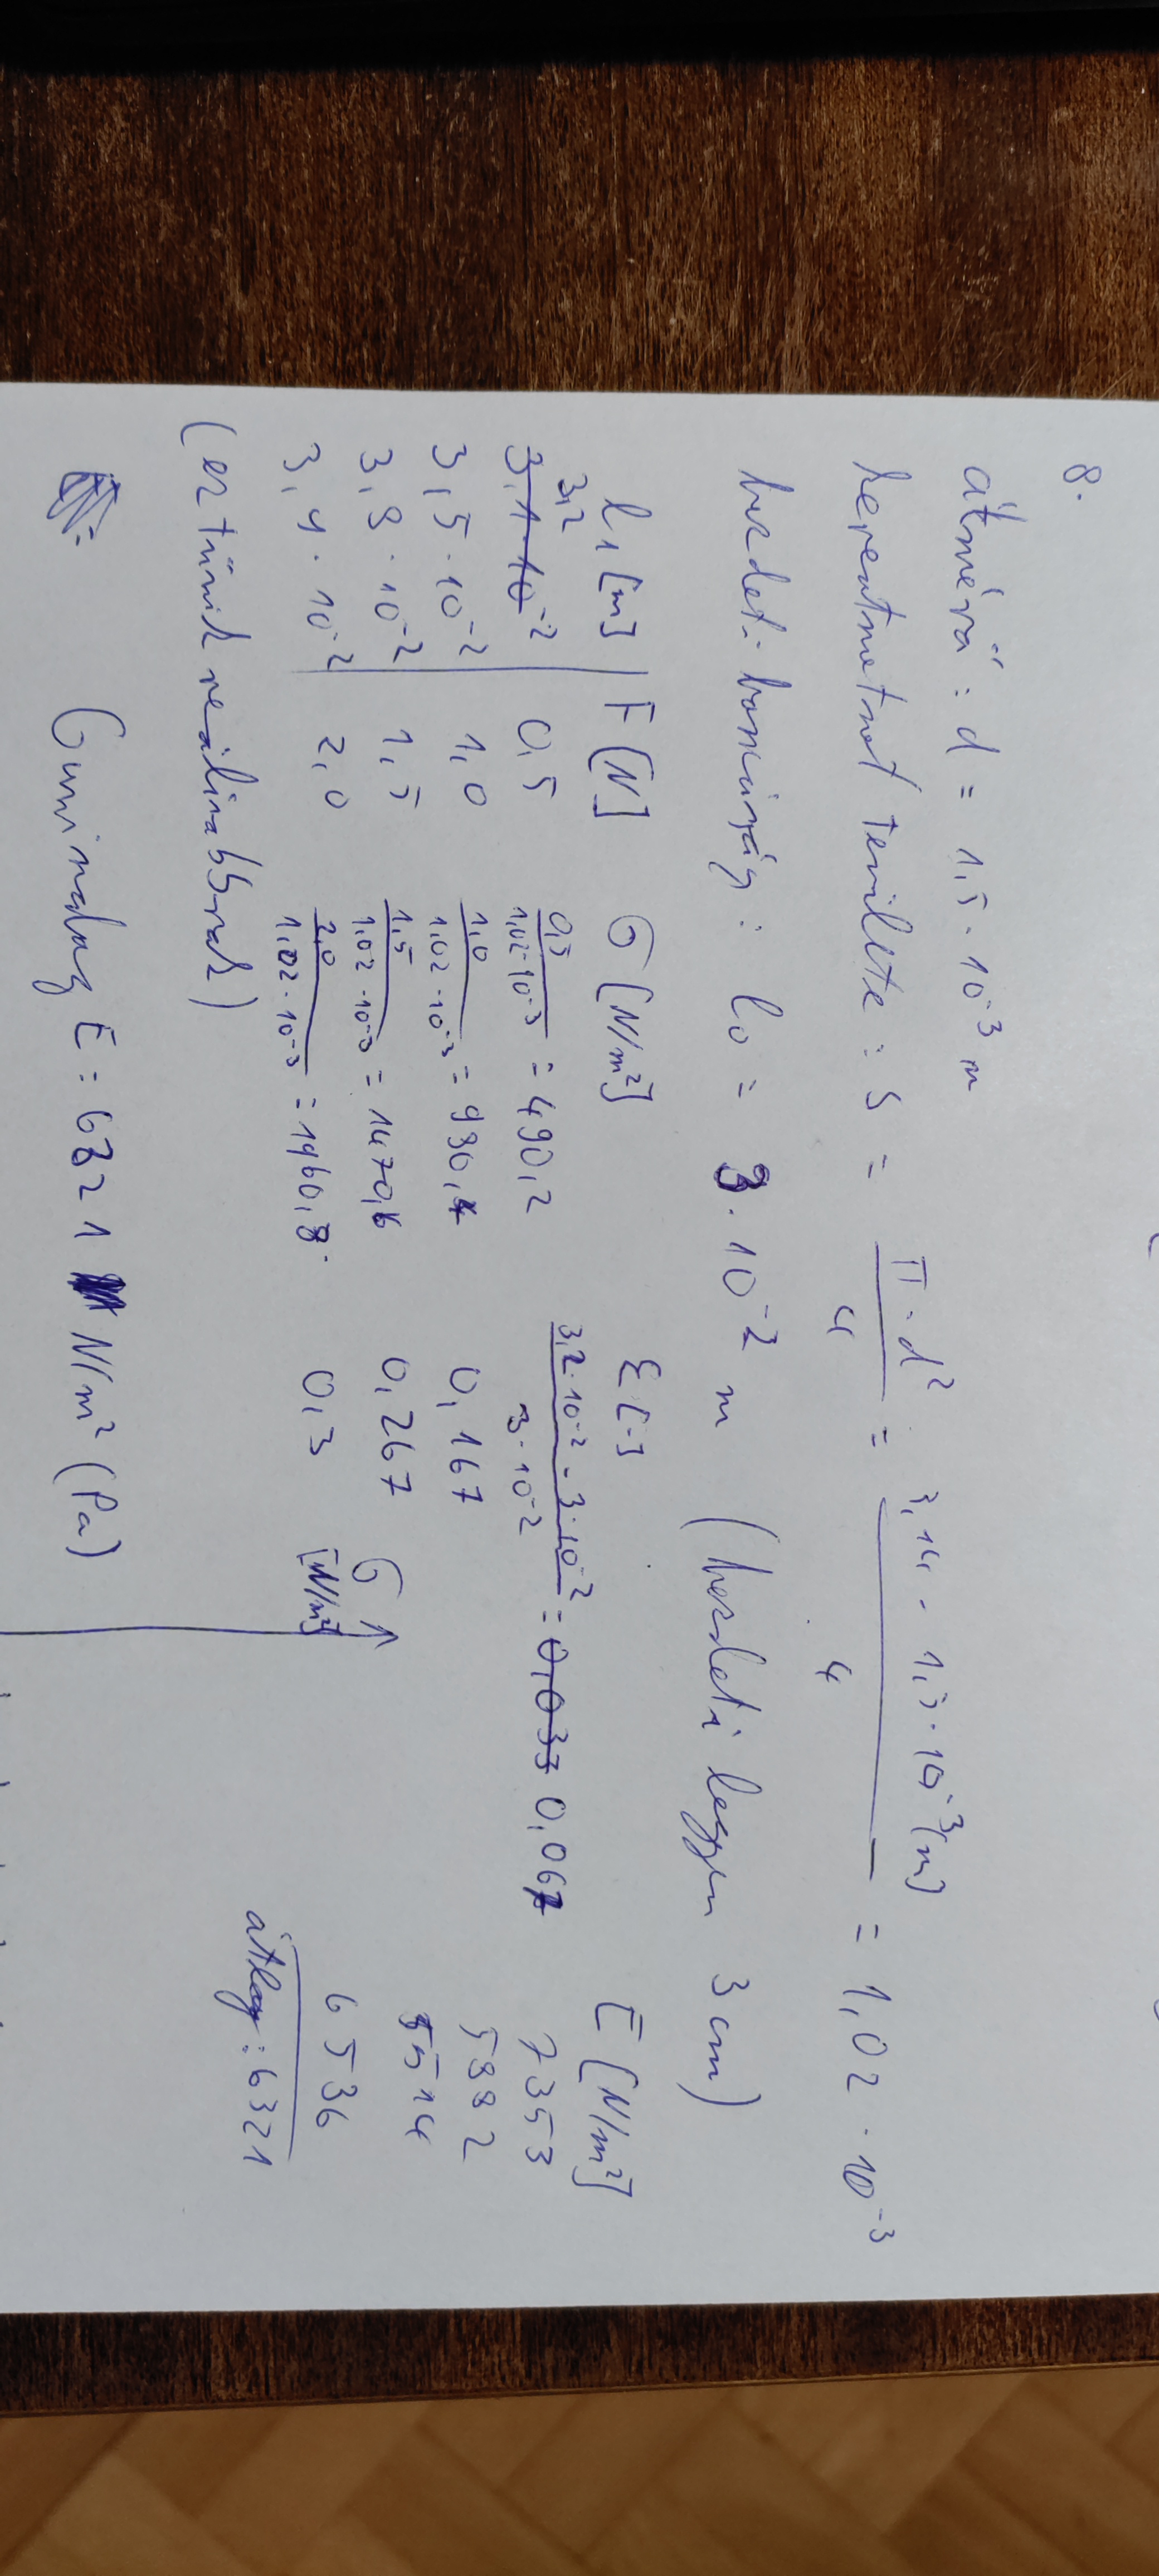 8.
átmérő: d = 1,5 · 10⁻³ m
keresztmetszet területe: S = π · d² / 4 = 3,14 · 1,3 · 10⁻³ (m) / 4 = 1,02 · 10⁻³
kezdeti hosszúság: l₀ = 3 · 10⁻² m (kezdeti legyen 3 cm)
l₁ [m] F [N] σ [N/m²] ε [-] E [N/m²]
3,2
3,1 · 10⁻² 0,5 0,5 / 1,02 · 10⁻³ = 490,2 3,2 · 10⁻² - 3 · 10⁻² / 3 · 10⁻² = 0,033 0,067 7353
3,5 · 10⁻² 1,0 1,0 / 1,02 · 10⁻³ = 980,4 0,167 5882
3,8 · 10⁻² 1,5 1,5 / 1,02 · 10⁻³ = 1470,6 0,267 5514
3,4 · 10⁻² 2,0 2,0 / 1,02 · 10⁻³ = 1960,8 0,3 6536
átlag: 6321
(ez tűnik reálisabbnak)
σ
[N/m²]
Gumiszalag E = 6321 N/m² (Pa)